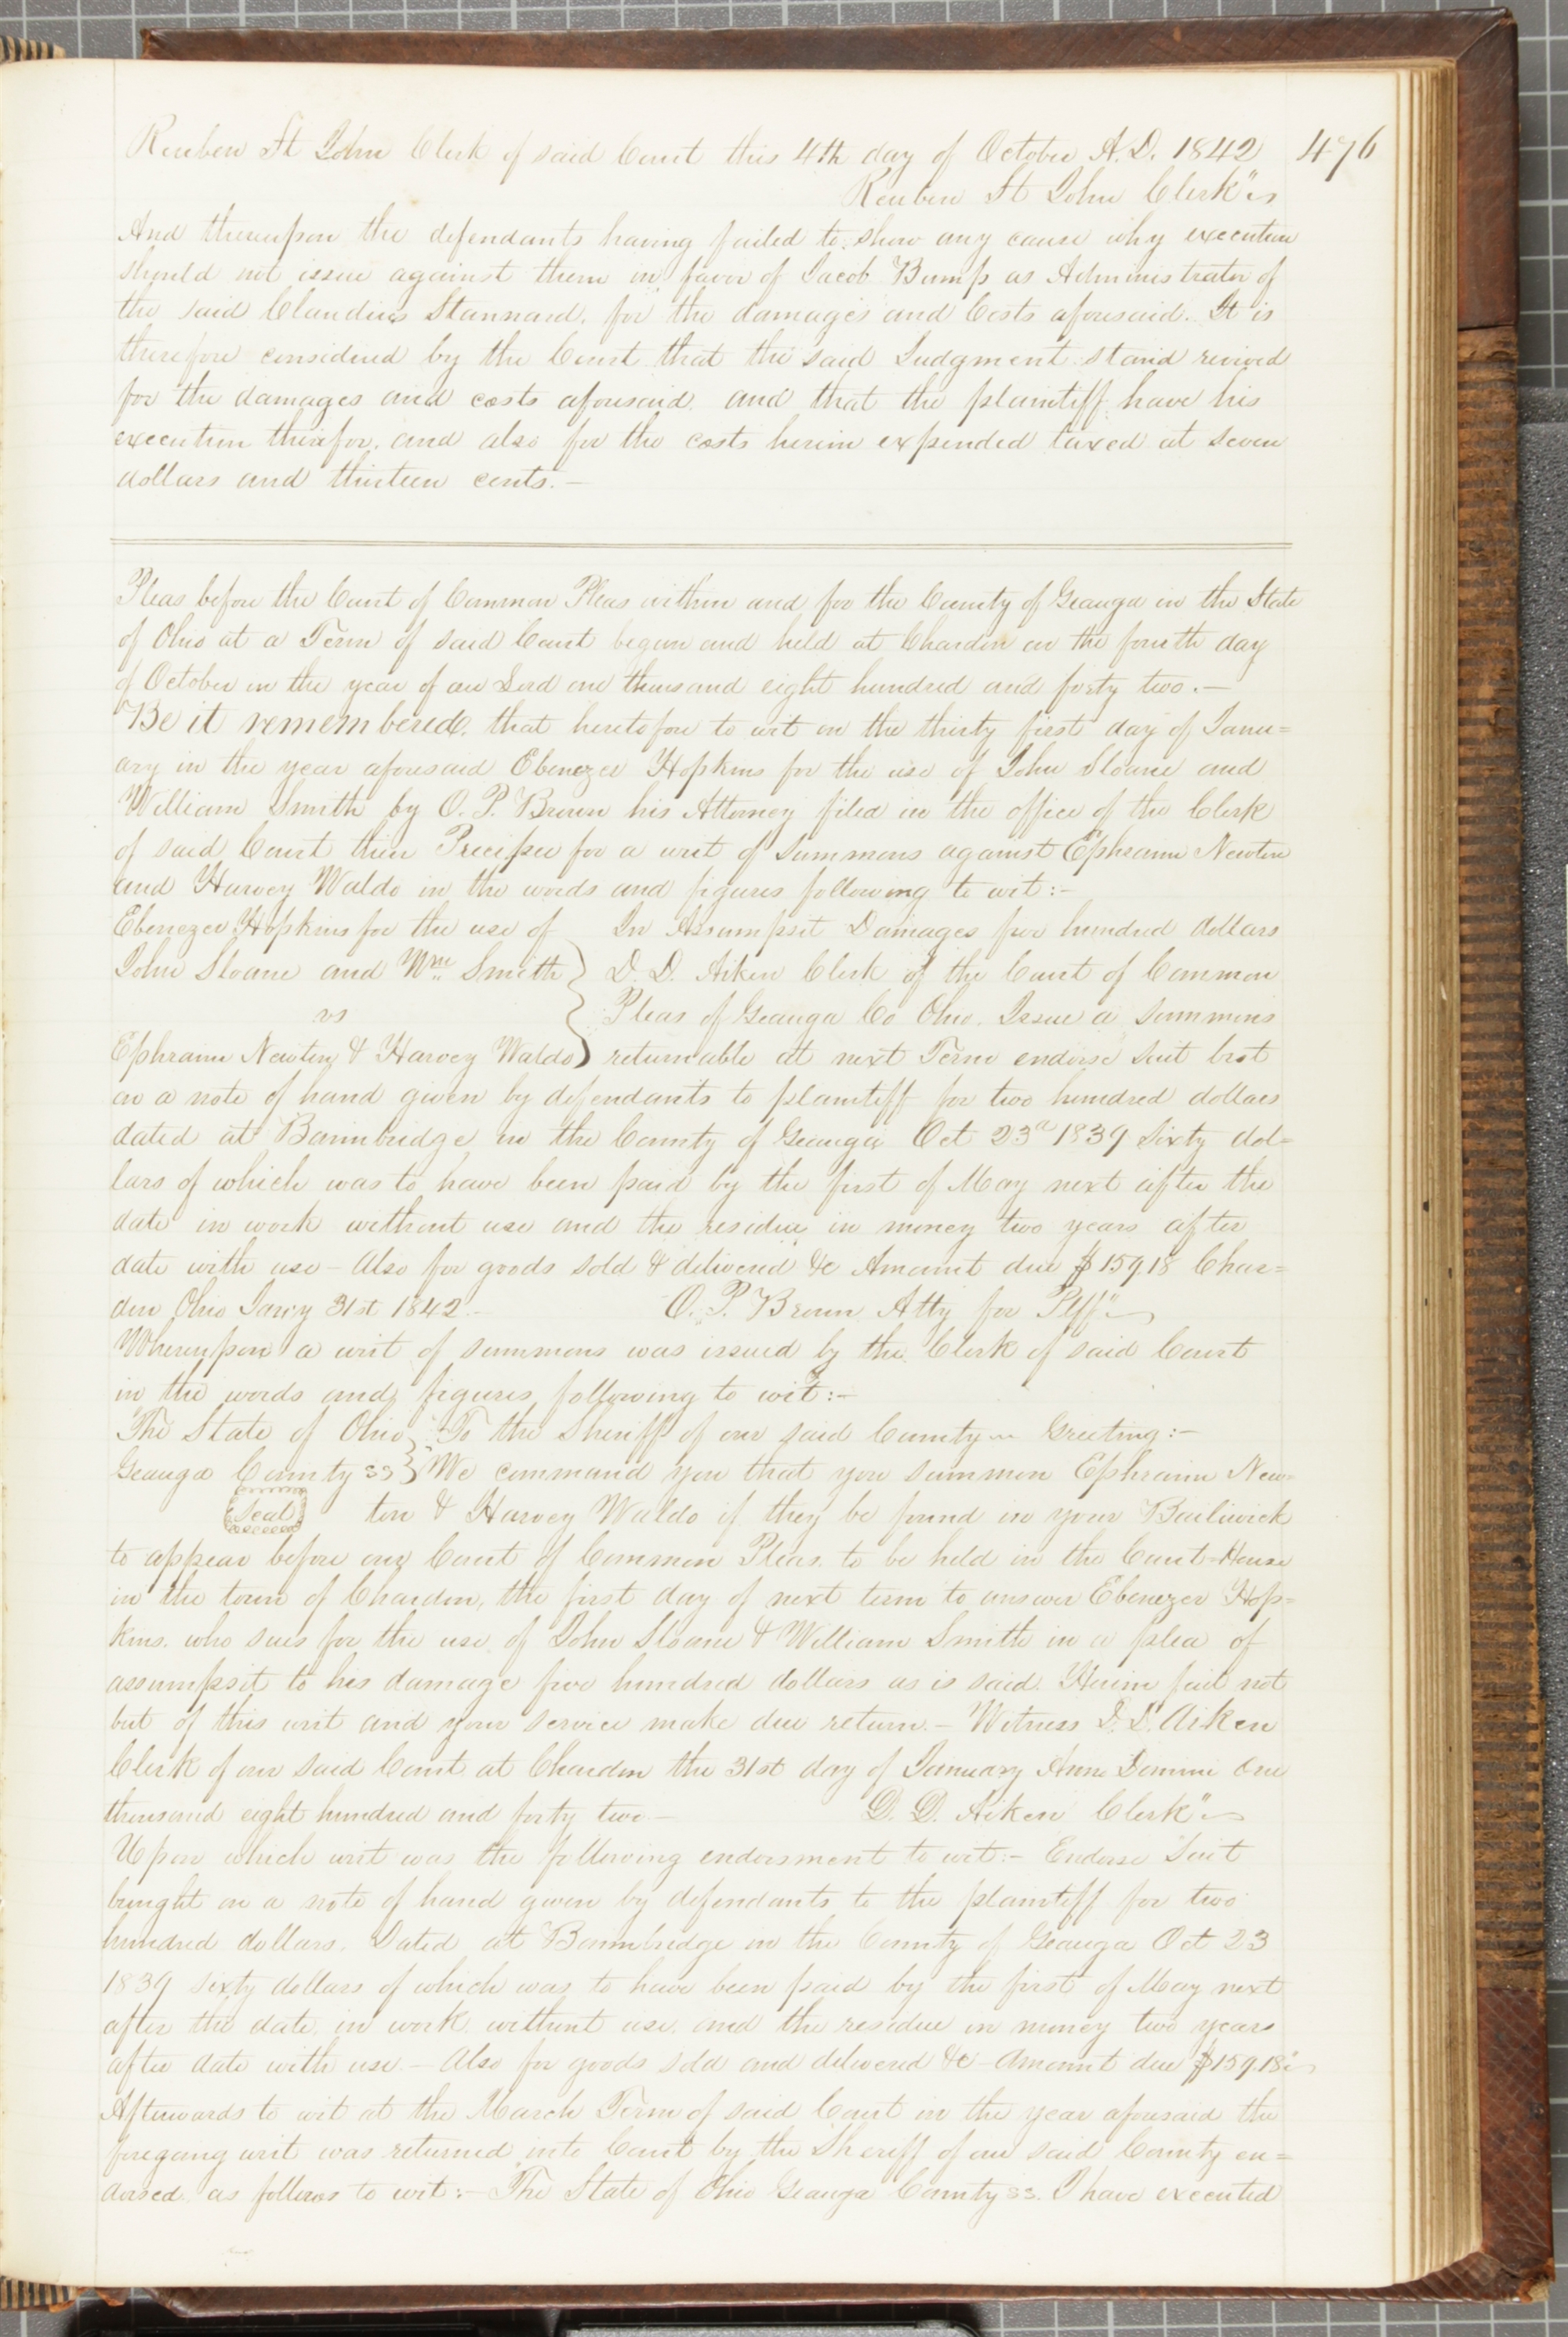 Reuben St John Clerk of said Court this 4th day of October A.D. 1842 476
Reuben St John Clerk"
And thereupon the defendants having failed to show any cause why execution
should not issue against them in favor of Jacob Bump as Administrator of
the said Claudius Stannard, for the damages and Costs aforesaid. It is
therefore considered by the Court that the said Judgment stand revived
for the damages and costs aforesaid, and that the plaintiff have his
execution therefor, and also for the costs herein expended taxed at seven
dollars and thirteen cents.—
Pleas before the Court of Common Pleas within and for the County of Geauga in the State
of Ohio at a Term of said Court begun and held at Chardon on the fourth day
of October in the year of our Lord one thousand eight hundred and forty two.—
Be it remembered, that heretofore to wit on the thirty first day of Janu=
ary in the year aforesaid Ebenezer Hopkins for the use of John Sloane and
William Smith by O. P. Brown his Attorney filed in the office of the Clerk
of said Court their Precipe for a writ of summons against Ephraim Newton
and Harvey Waldo in the words and figures following to wit:-
Ebenezer Hopkins for the use of In Assumpsit Damages five hundred dollars
John Sloane and Wm. Smith } D. D. Aiken Clerk of the Court of Common
vs Pleas of Geauga Co Ohio. Issue a summons
Ephraim Newton & Harvey Waldo } returnable at next Term endorse suit brot
on a note of hand given by defendants to plaintiff for two hundred dollars
dated at Bainbridge in the County of Geauga Oct 23d 1839 sixty dol=
lars of which was to have been paid by the first of May next after the
date in work without use and the residue in money two years after
date with use - Also for goods sold & delivered &c Amount due $159.18 Char=
don Ohio Jany 31st 1842.- O. P. Brown Atty for Plff"
Whereupon a writ of summons was issued by the Clerk of said Court
in the words and figures following to wit:-
"The State of Ohio } To the Sheriff of our said County — Greeting:-
Geauga County ss } We command you that you summon Ephraim New=
Seal ton & Harvey Waldo if they be found in your Bailiwick
to appear before our Court of Common Pleas, to be held in the Court=House
in the town of Chardon, the first day of next term to answer Ebenezer Hop=
kins, who sues for the use of John Sloane & William Smith in a plea of
assumpsit to his damage five hundred dollars as is said. Herein fail not
but of this writ and your service make due return.- Witness D. D. Aiken
Clerk of our said Court at Chardon the 31st day of January Anno Domini one
thousand eight hundred and forty two - D. D. Aiken Clerk"
Upon which writ was the following endorsment to wit:- Endorse "Suit
brought on a note of hand given by defendants to the plaintiff for two
hundred dollars. Dated at Bainbridge in the County of Geauga Oct 23
1839 sixty dollars of which was to have been paid by the first of May next
after the date, in work, without use, and the residue in money two years
after date with use - Also for goods sold and delivered &c - Amount due $159.18"
Afterwards to wit at the March Term of said Court in the year aforesaid the
foregoing writ was returned into Court by the Sheriff of our said County en=
dorsed as follows to wit:- "The State of Ohio Geauga County ss. I have executed